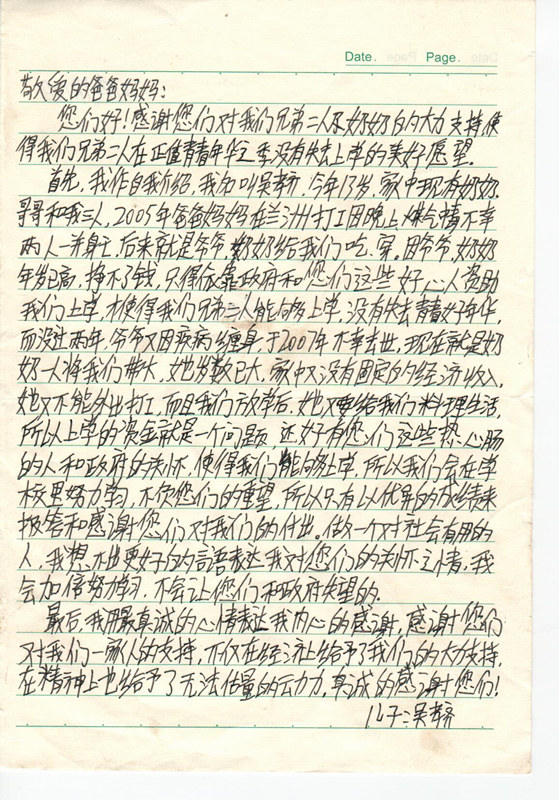 Date. Page.
敬爱的爸爸妈妈:
您们好!感谢您们对我们兄弟二人及奶奶的大力支持,使
得我们兄弟二人在正值青青年华之季没有失去上学的美好愿望。
首先,我作自我介绍,我名叫吴,今年13岁,家中现有奶奶
哥哥和我三人,2005年爸爸妈妈在兰州打工因晚上煤气情不幸
两人一并身亡,后来就是爷爷,奶奶给我们吃、穿。因爷爷,奶奶
年岁已高,挣不了钱,只得依靠政府和您们这些好心人资助
我们上学,才使得我们兄弟二人能够上学,没有失去青春好年华,
而没过两年,爷爷又因疾病缠身,于2007年不幸去世,现在就是奶
奶一人将我们带大,她岁数已大,家中又没有固定的经济收入,
她又不能外出打工,而且我们放学后,她又要给我们料理生活,
所以上学的资金就是一个问题 还好有您们这些热心肠
的人和政府的关怀,使得我们能够上学,所以我们会在学
校里努力学习,不负您们的重望,所以只有以优异的成绩来
报答和感谢您们对我们的付出。做一个对社会有用的
人,我想不出更好的言语表达我对您们的关怀之情,我
会加倍努力学习,不会让您们和政府失望的.
最后,我用最真诚的心情表达我内心的感谢,感谢您们
对我们一家人的支持,不仅在经济上给予了我们的大力支持,
在精神上也给予了无法估量的动力,真诚的感谢您们!
儿子:吴